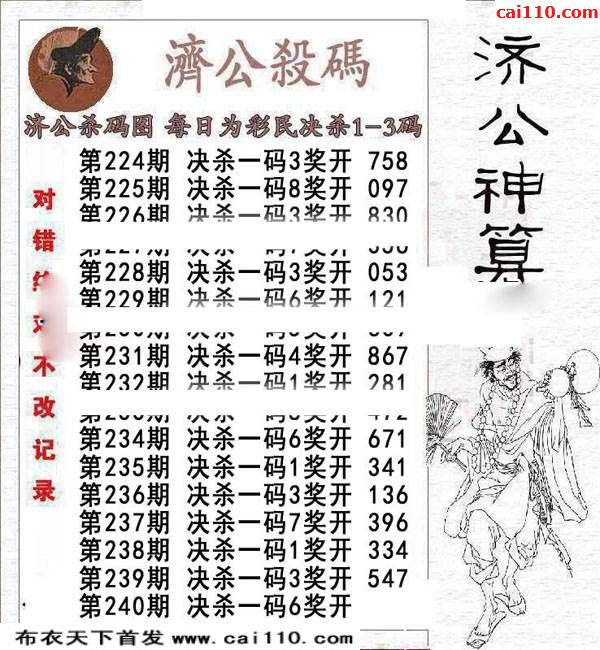 cai110.com
濟公殺碼
济公神算
济公杀码图 每日为彩民决杀1-3码
第224期 决杀一码3奖开 758
第225期 决杀一码8奖开 097
第226期 决杀一码3奖开 830
第228期 决杀一码3奖开 053
第229期 决杀一码6奖开 121
第231期 决杀一码4奖开 867
第232期 决杀一码1奖开 281
第234期 决杀一码6奖开 671
第235期 决杀一码1奖开 341
第236期 决杀一码3奖开 136
第237期 决杀一码7奖开 396
第238期 决杀一码1奖开 334
第239期 决杀一码3奖开 547
第240期 决杀一码6奖开
对错
不改记录
布衣天下首发 www.cai110.com